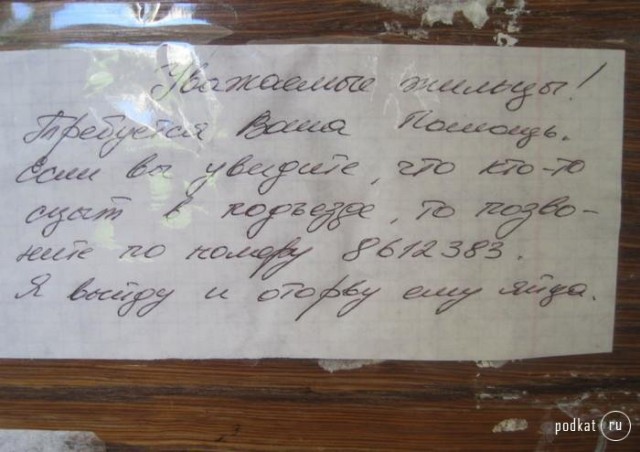 Уважаемые жильцы!
Требуется Ваша Помощь.
Если вы увидите, что кто-то
сцыт в подъезде, то позво-
ните по номеру 8612383.
Я выйду и оторву ему яйца.
podkat ru